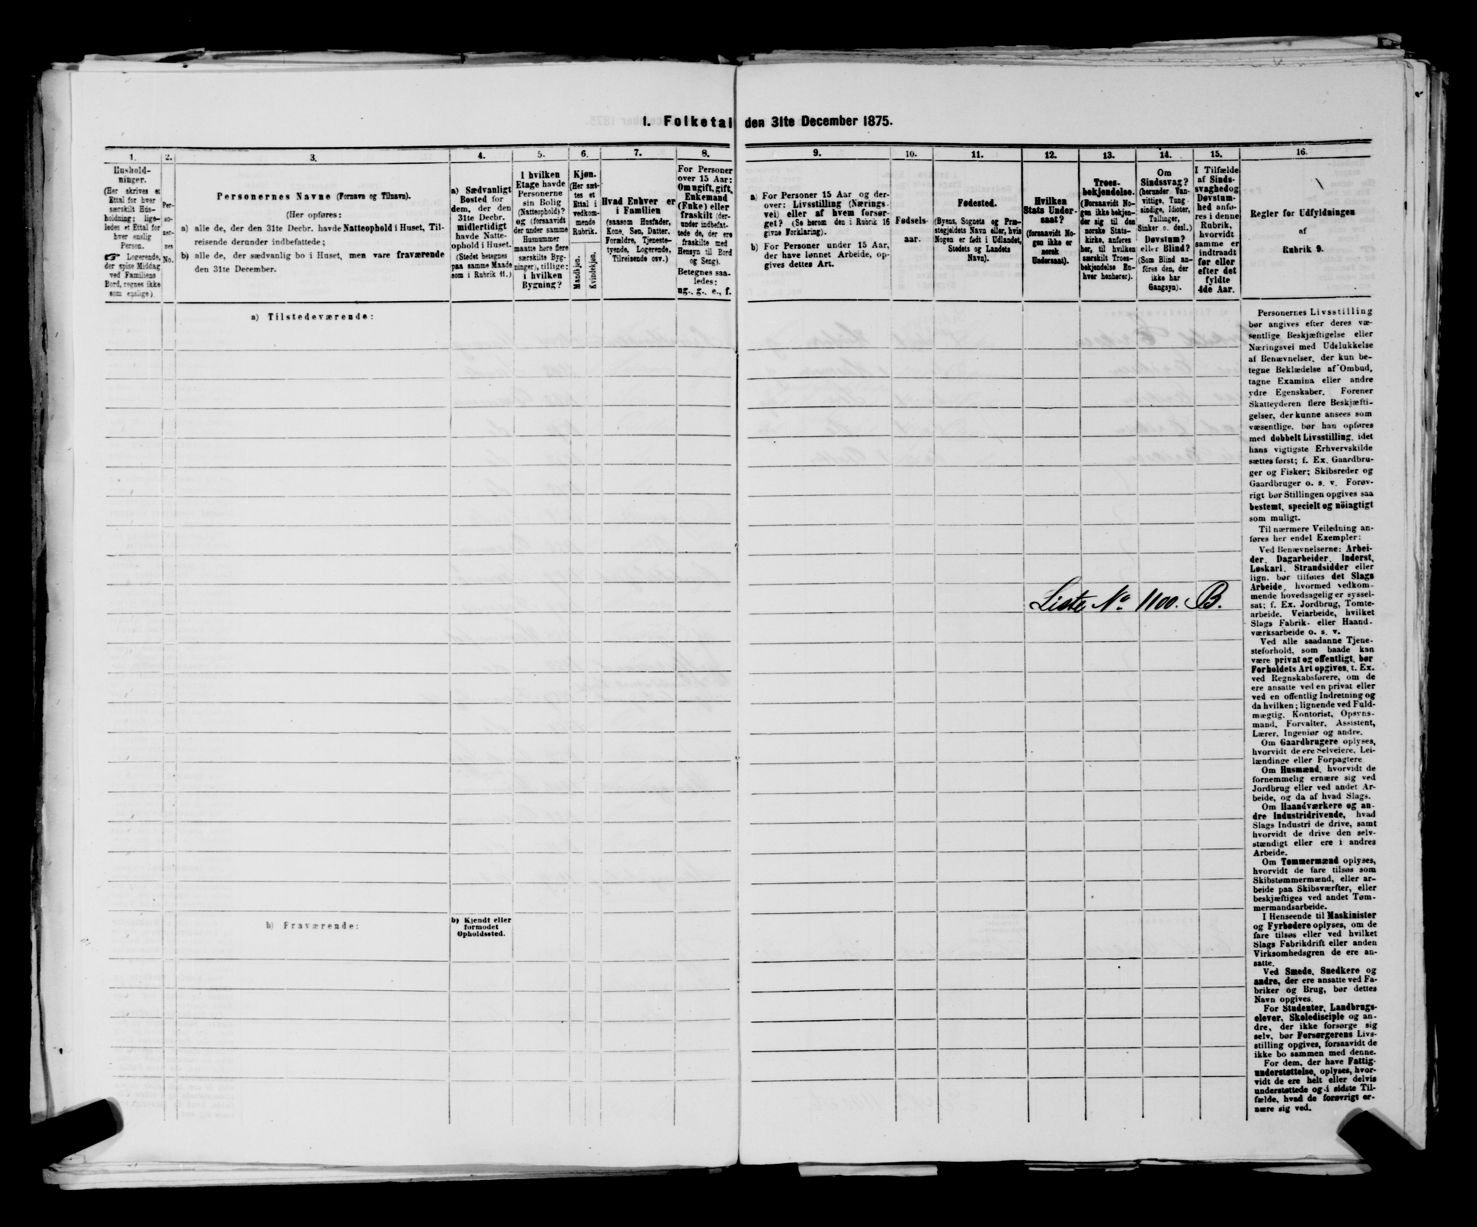 I. Folketal den 31te December 1875.
1.
Hushold-
ninger.
(Her skrives et
Ettal for hver
særskilt Hus-
holdning; lige-
ledes et Ettal for
hver enslig
Person.
☞ Logerende,
der spise Middag
ved Familiens
Bord, regnes ikke
som enslige).
2.
Per-
so-
ner-
nes
No.
3.
Personernes Navne (Fornavn og Tilnavn).
(Her opføres:
a) alle de, der den 31te Decbr. havde Natteophold i Huset, Til-
reisende derunder indbefattede;
b) alle de, der sædvanlig bo i Huset, men vare fraværende
den 31te December.
4.
a) Sædvanligt
Bosted for
dem, der den
31te Decbr.
midlertidigt
havde Natte-
ophold i Huset.
(Stedet betegnes
paa samme Maade
som i Rubrik 11.)
5.
I hvilken
Etage havde
Personerne
sin Bolig
(Natteophold)?
og (forsaavidt
der under samme
Husnummer
maatte høre flere
særskilte Byg-
ninger), tillige:
i hvilken
Bygning?
6.
Kjøn.
(Her sæt-
tes et
Ettal i
vedkom-
mende
Rubrik.
Mandkjøn.
Kvindekjøn.
7.
Hvad Enhver er
i Familien
(saasom Husfader,
Kone, Søn, Datter,
Forældre, Tjeneste-
tyende, Logerende,
Tilreisende osv.)
8.
For Personer
over 15 Aar:
Om ugift, gift,
Enkemand
(Enke) eller
fraskilt (der-
under indbefat-
tede de, der ere
fraskilte med
Hensyn til Bord
og Seng).
Betegnes saa-
ledes:
ug., g., e., f.
9.
a) For Personer 15 Aar og der-
over: Livsstilling (Nærings-
vei) eller af hvem forsør-
get? (Se herom den i Rubrik 16
givne Forklaring).
b) For Personer under 15 Aar,
der have lønnet Arbeide, op-
gives dettes Art.
10.
Fødsels-
aar.
11.
Fødested.
(Byens, Sognets og Præ-
stegjeldets Navn eller, hvis
Nogen er født i Udlandet,
Stedets og Landets
Navn).
12.
Hvilken
Stats Under-
saat?
(forsaavidt No-
gen ikke er
norsk
Undersaat).
13.
Troes-
bekjendelse.
(Forsaavidt No-
gen ikke bekjen-
der sig til den
norske Stats-
kirke, anføres
her, til hvilken
særskilt Troes-
bekjendelse En-
hver henhører).
14.
Om
Sindssvag?
(herunder Van-
vittige, Tung-
sindige, Idioter,
Tullinger,
Sinker o. desl.)
Døvstum?
eller Blind?
(Som Blind an-
føres den, der
ikke har
Gangsyn).
15.
I Tilfælde
af Sinds-
svaghed og
Døvstum-
hed anfø-
res i denne
Rubrik,
hvorvidt
samme er
indtraadt
før eller
efter det
fyldte
4de Aar.
16.
Regler for Udfyldningen
af
Rubrik 9.
a) Tilstedeværende:
Personernes Livsstilling
bør angives efter deres væ-
sentlige Beskjæftigelse eller
Næringsvei med Udelukkelse
af Benævnelser, der kun be-
tegne Beklædelse af Ombud,
tagne Examina eller andre
ydre Egenskaber. Forener
Skatteyderen flere Beskjæfti-
gelser, der kunne ansees som
væsentlige, bør han opføres
med dobbelt Livsstilling, idet
hans vigtigste Erhvervskilde
sættes først; f. Ex. Gaardbru-
ger og Fisker; Skibsreder og
Gaardbruger o. s. v. Forøv-
rigt bør Stillingen opgives saa
bestemt, specielt og nöiagtigt
som muligt.
Til nærmere Veiledning an-
føres her endel Exempler:
Ved Benævnelserne: Arbei-
der, Dagarbeider, Inderst,
Løskarl, Strandsidder eller
lign. bør tilføies det Slags
Arbeide, hvormed vedkom-
mende hovedsagelig er syssel-
sat; f. Ex. Jordbrug, Tomte-
arbeide, Veiarbeide, hvilket
Slags Fabrik- eller Haand-
værksarbeide o. s. v.
Ved alle saadanne Tjene-
steforhold, som baade kan
være privat og offentligt, bør
Forholdets Art opgives, f. Ex.
ved Regnskabsførere, om de
ere ansatte ved en privat eller
ved en offentlig Indretning og
da hvilken; lignende ved Fuld-
mægtig, Kontorist, Opsyns-
mand, Forvalter, Assistent,
Lærer, Ingeniør og andre.
Om Gaardbrugere oplyses,
hvorvidt de ere Selveiere, Lei-
lændinge eller Forpagtere
Om Husmænd, hvorvidt de
fornemmelig ernære sig ved
Jordbrug eller ved andet Ar-
beide, og da af hvad Slags.
Om Haandværkere og an-
dre Industridrivende, hvad
Slags Industri de drive, samt
hvorvidt de drive den selv-
stændigt eller ere i andres
Arbeide.
Om Tømmermænd oplyses,
hvorvidt de fare tilsøs som
Skibstømmermænd, eller ar-
beide paa Skibsværfter, eller
beskjæftiges ved andet Tøm-
mermandsarbeide.
I Henseende til Maskinister
og Fyrbødere oplyses, om de
fare tilsøs eller ved hvilket
Slags Fabrikdrift eller anden
Virksomhedsgren de ere an-
satte.
Ved Smede, Snedkere og
andre, der ere ansatte ved Fa-
briker og Brug, bør dettes
Navn opgives.
For Studenter, Landbrugs-
elever, Skoledisciple og an-
dre, der ikke forsørge sig
selv, bør Forsørgerens Livs-
stilling opgives, forsaavidt de
ikke bo sammen med denne.
For dem, der have Fattig-
understøttelse, oplyses, hvor-
vidt de ere helt eller delvis
understøttede og i sidste Til-
fælde, hvad de forøvrigt er-
nære sig ved.
Liste No. 1100. B.
b) Fraværende:
b) Kjendt eller
formodet
Opholdssted.